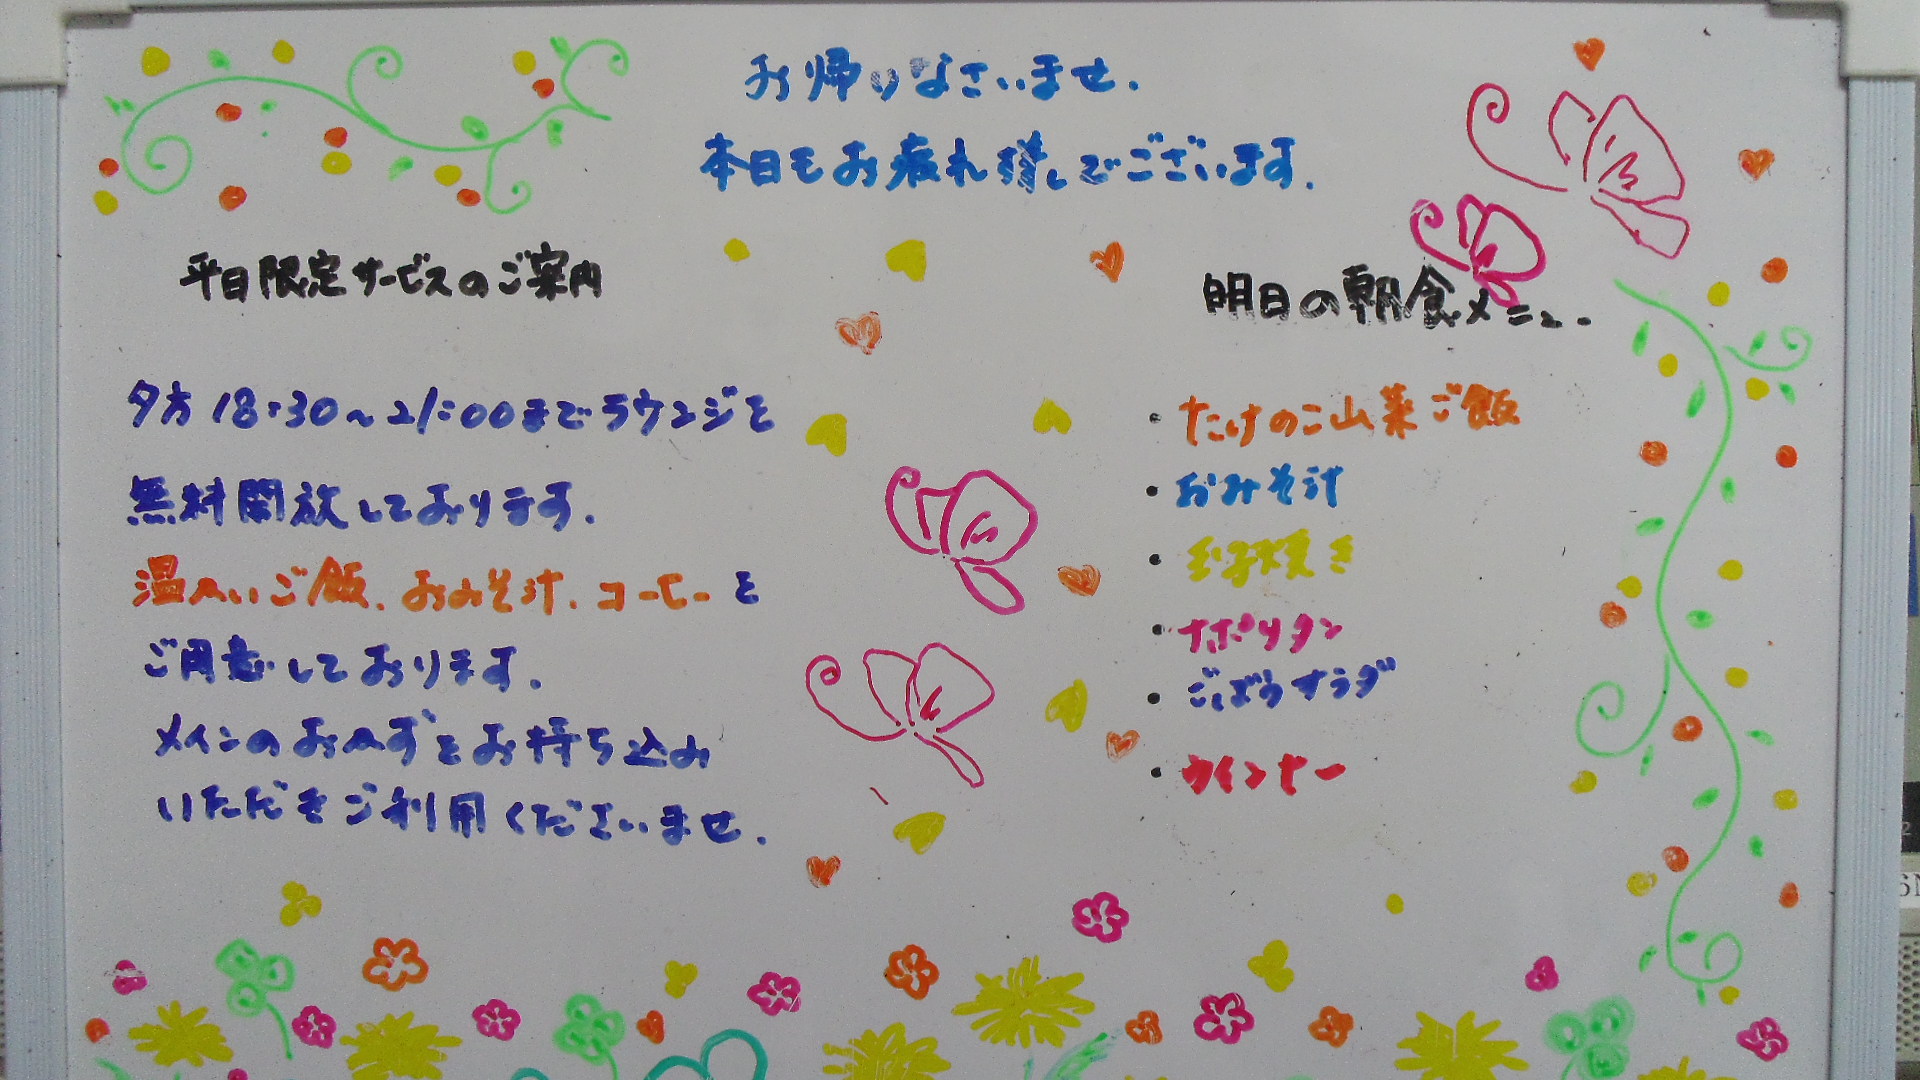 お帰りなさいませ.
本日もお疲れ様でございます.
平日限定サービスのご案内
夕方18:30～21:00までラウンジを
無料開放しております.
温かいご飯.おみそ汁.コーヒーを
ご用意しております.
メインのおかずをお持ち込み
いただきご利用くださいませ.
明日の朝食メニュー
・たけのこ山菜ご飯
・おみそ汁
・玉子焼き
・ナポリタン
・ごぼうサラダ
・ウインナー